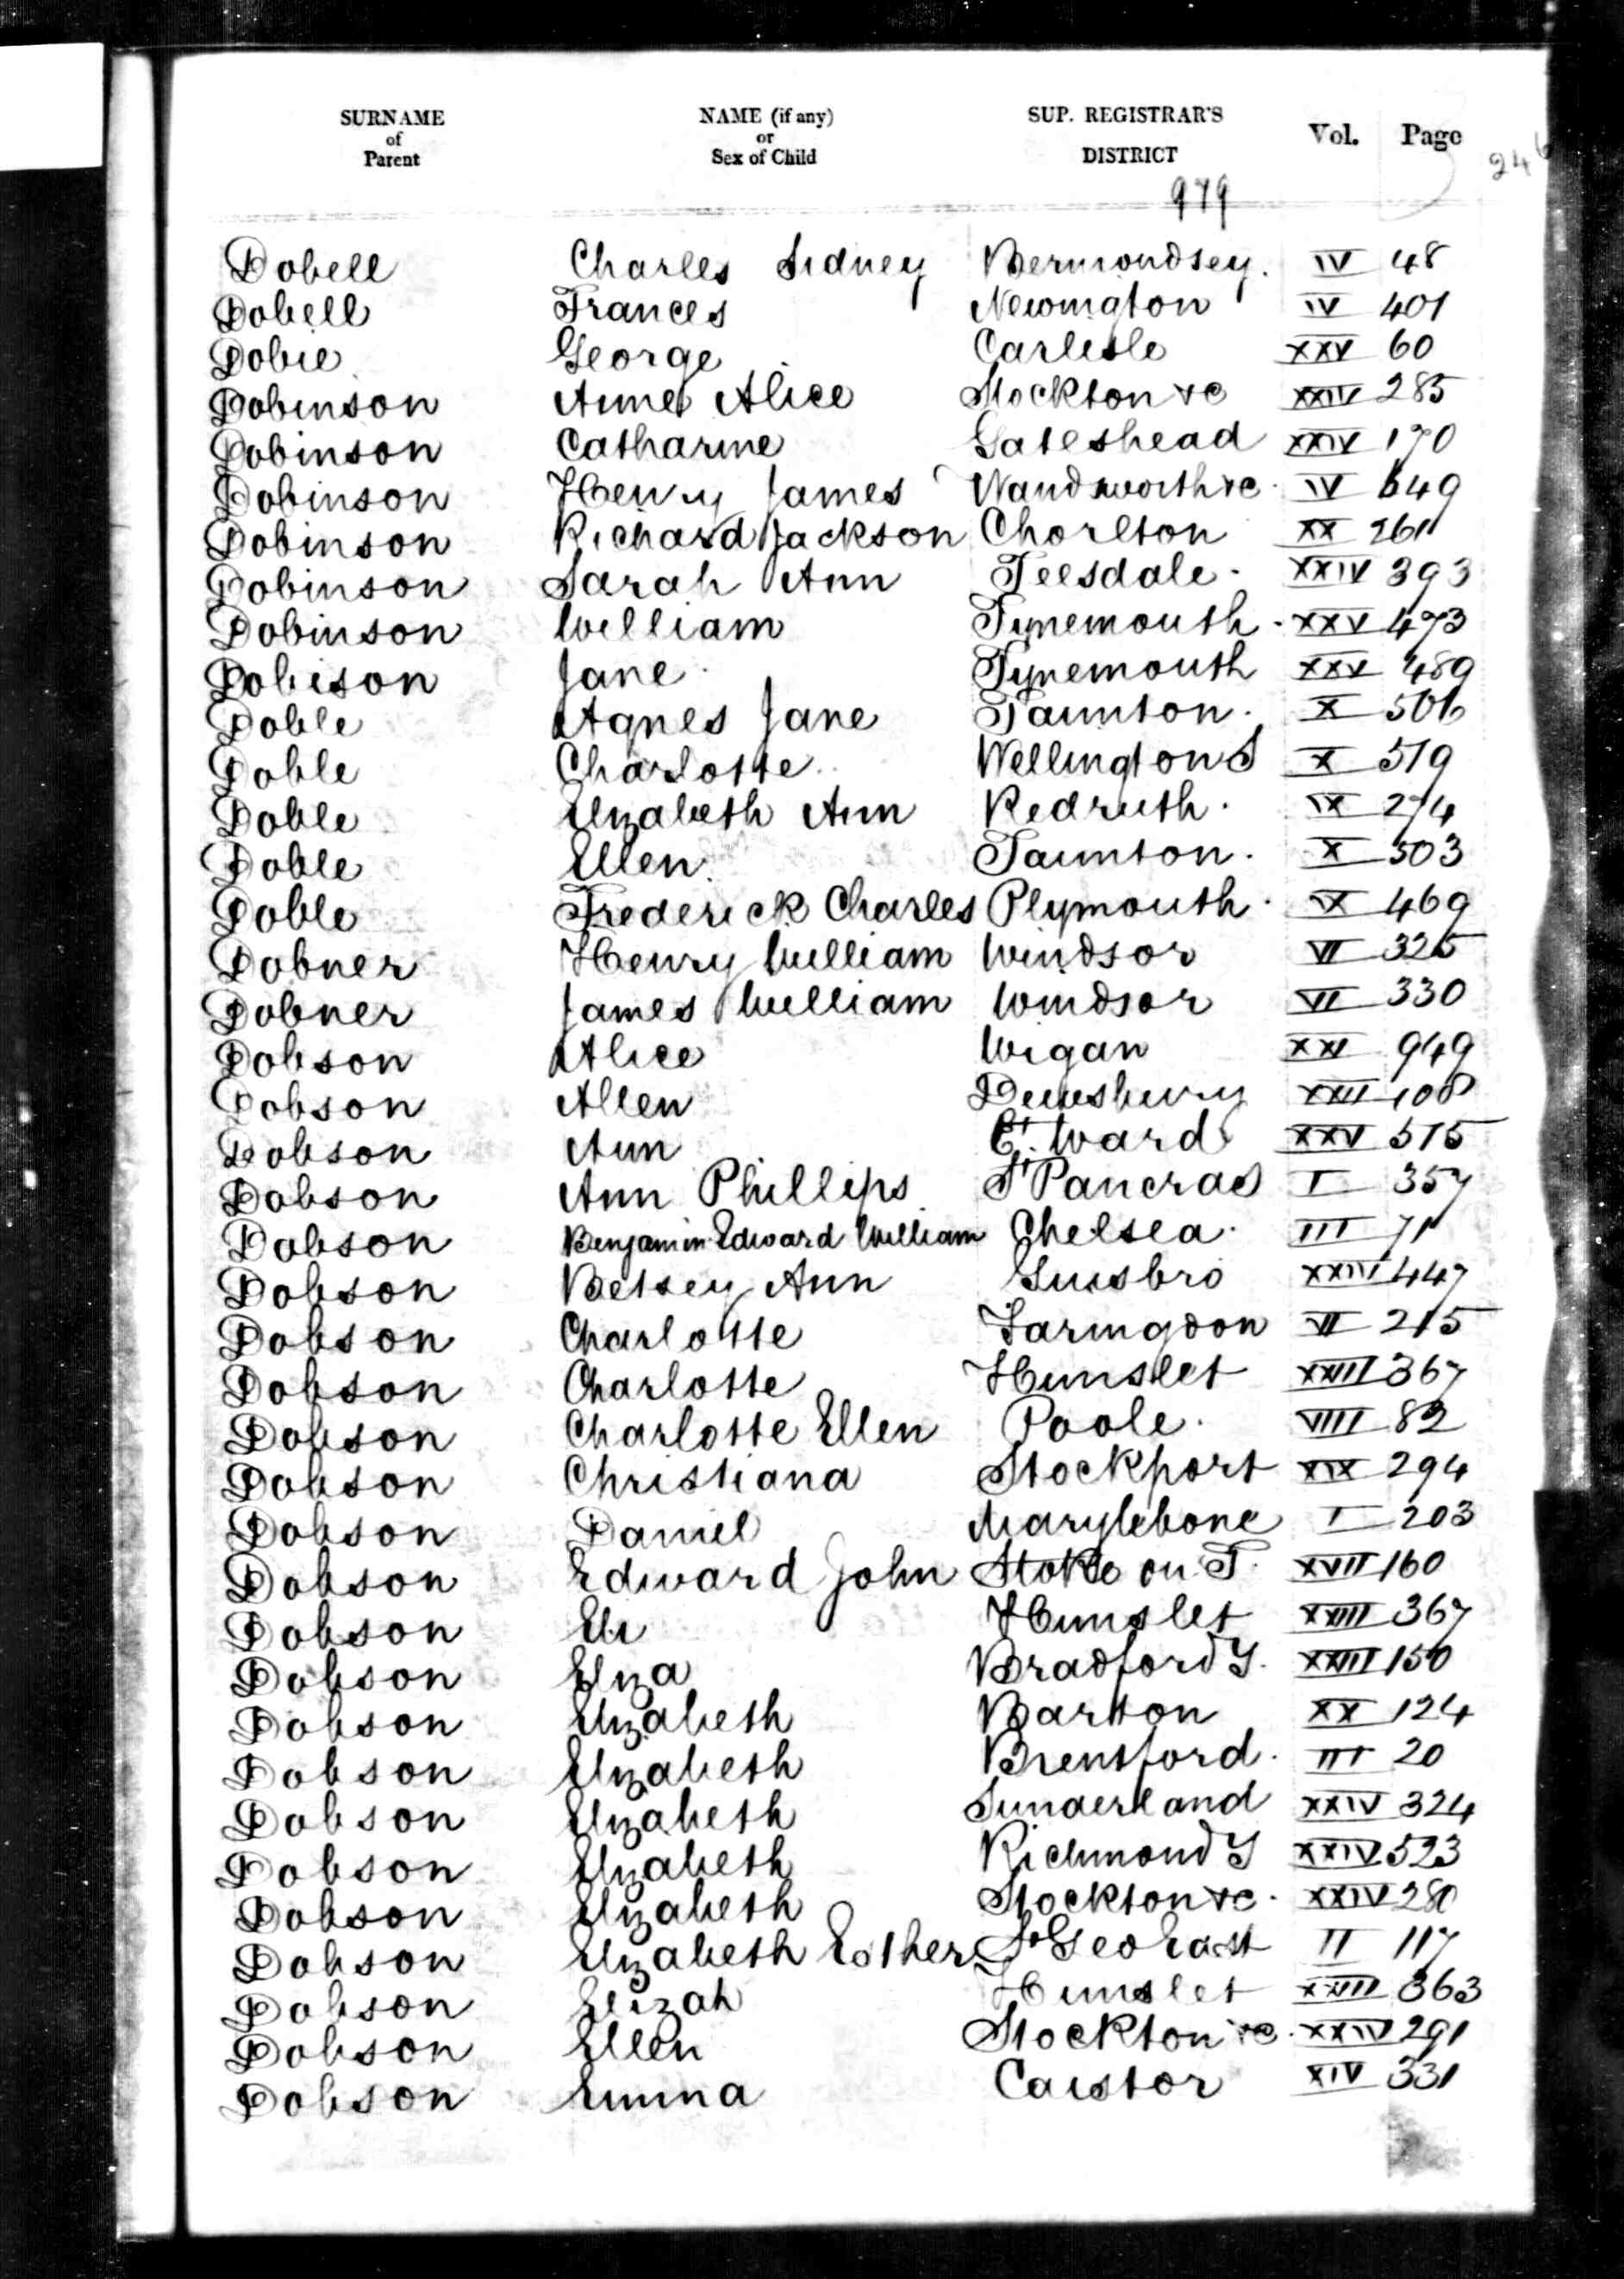 SURNAME of Parent NAME (if any) or Sex of Child SUP. REGISTRAR'S DISTRICT Vol. Page
979
Dobell Charles Sidney Bermondsey. IV 48
Dobell Frances Newington IV 401
Dobie George Carlisle XXV 60
Dobinson Anne Alice Stockton &c XXIV 285
Dobinson Catharine Gateshead XXIV 170
Dobinson Henry James Wandsworth &c. IV 649
Dobinson Richard Jackson Chorlton XX 261
Dobinson Sarah Ann Teesdale. XXIV 393
Dobinson William Tynemouth. XXV 473
Dobison Jane. Tynemouth XXV 489
Doble Agnes Jane Taunton. X 506
Doble Charlotte. Wellington S X 519
Doble Elizabeth Ann Redruth. IX 274
Doble Ellen. Taunton. X 503
Doble Frederick Charles Plymouth. IX 469
Dobner Henry William Windsor VI 325
Dobner James William Windsor VI 330
Dobson Alice Wigan XXI 949
Dobson Allen Dewsbury XXII 108
Dobson Ann Et. Ward XXV 515
Dobson Ann Phillips St Pancras I 357
Dobson Benjamin Edward William Chelsea. III 71
Dobson Betsey Ann Guisbro XXIV 447
Dobson Charlotte Faringdon VI 215
Dobson Charlotte Hunslet XXIII 367
Dobson Charlotte Ellen Poole. VIII 82
Dobson Christiana Stockport XIX 294
Dobson Daniel Marylebone I 203
Dobson Edward John Stoke on T. XVII 160
Dobson Eli Hunslet XXIII 367
Dobson Eliza Bradford Y. XXIII 150
Dobson Elizabeth Barton XX 124
Dobson Elizabeth Brentford. III 20
Dobson Elizabeth Sunderland XXIV 324
Dobson Elizabeth Richmond Y XXIV 523
Dobson Elizabeth Stockton &c. XXIV 280
Dobson Elizabeth Esther St Geo East II 117
Dobson Elizah Hunslet XXIII 363
Dobson Ellen Stockton &c. XXIV 291
Dobson Emma Caistor XIV 331